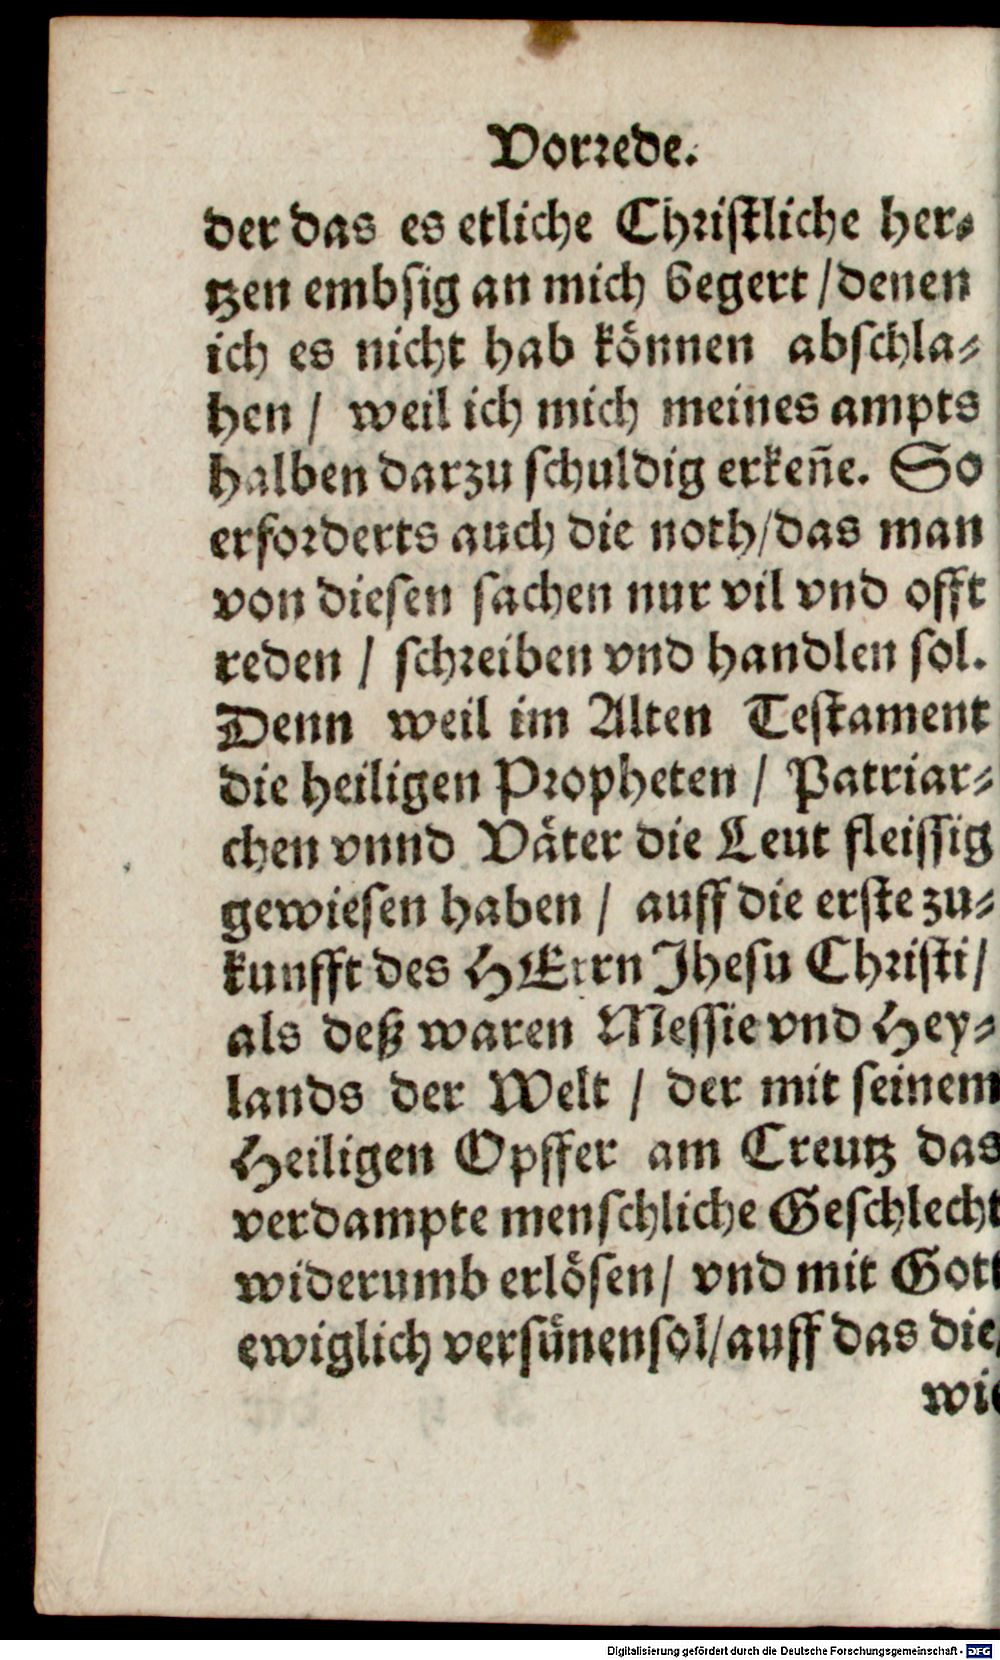 Vorrede.
der das es etliche Christliche her⸗
tzen embsig an mich begert / denen
ich es nicht hab können abschla⸗
hen / weil ich mich meines ampts
halben darzu schuldig erkeñe. So
erforderts auch die noth / das man
von diesen sachen nur vil vnd offt
reden / schreiben vnd handlen sol.
Denn weil im Alten Testament
die heiligen Propheten / Patriar⸗
chen vnnd Väter die Leut fleissig
gewiesen haben / auff die erste zu⸗
kunfft des HErrn Jhesu Christi /
als deß waren Messie vnd Hey⸗
lands der Welt / der mit seinem
Heiligen Opffer am Creutz das
verdampte menschliche Geschlecht
widerumb erlösen / vnd mit Gott
ewiglich versünen sol / auff das die
wie
Digitalisierung gefördert durch die Deutsche Forschungsgemeinschaft - DFG